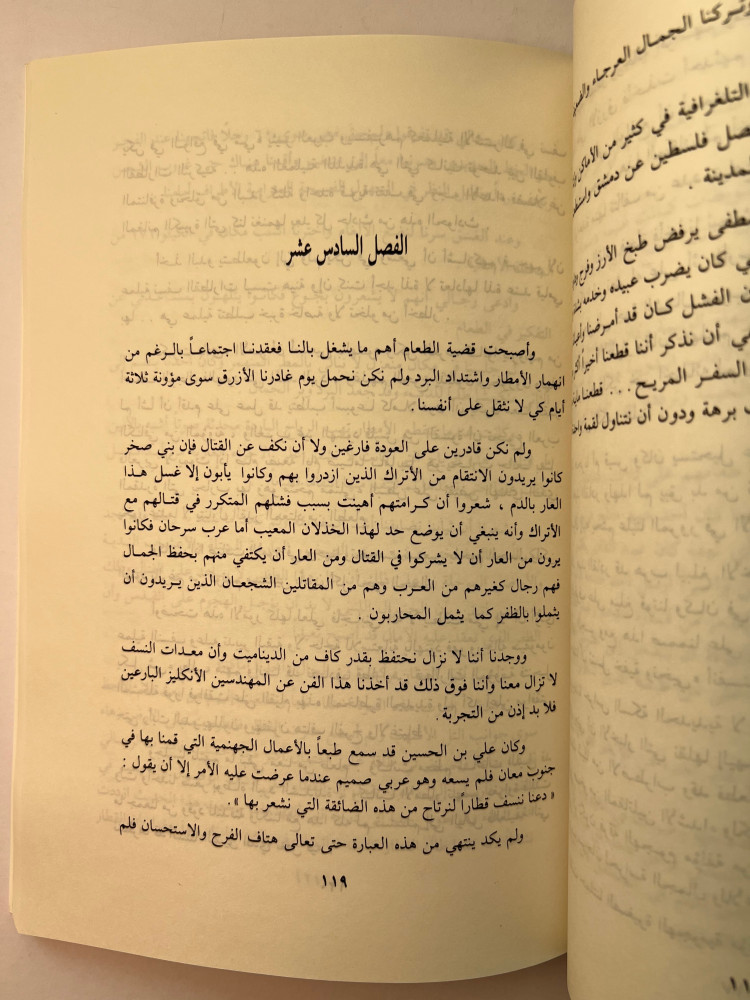 الفصل السادس عشر
وأصبحت قضية الطعام أهم ما يشغل بالنا فعقدنا اجتماعاً بالرغم من
انهمار الأمطار واشتداد البرد ولم نكن نحمل يوم غادرنا الأزرق سوى مؤونة ثلاثة
أيام كي لا نثقل على أنفسنا .
ولم نكن قادرين على العودة فارغين ولا أن نكف عن القتال فإن بني صخر
كانوا يريدون الانتقام من الأتراك الذين ازدروا بهم وكانوا يأبون إلا غسل هذا
العار بالدم ، شعروا أن كرامتهم أهينت بسبب فشلهم المتكرر في قتالهم مع
الأتراك وأنه ينبغي أن يوضع حد لهذا الخذلان المعيب أما عرب سرحان فكانوا
يرون من العار أن لا يشركوا في القتال ومن العار أن يكتفي منهم بحفظ الجمال
فهم رجال كغيرهم من العرب وهم من المقاتلين الشجعان الذين يريدون أن
يثملوا بالظفر كما يثمل المحاربون .
ووجدنا أننا لا نزال نحتفظ بقدر كاف من الديناميت وأن معدات النسف
لا تزال معنا وأننا فوق ذلك قد أخذنا هذا الفن عن المهندسين الأنكليز البارعين
فلا بد إذن من التجربة .
وكان علي بن الحسين قد سمع طبعاً بالأعمال الجهنمية التي قمنا بها في
جنوب معان فلم يسعه وهو عربي صميم عندما عرضت عليه الأمر إلا أن يقول :
« دعنا ننسف قطاراً لنرتاح من هذه الضائقة التي نشعر بها » .
ولم يكد ينتهي من هذه العبارة حتى تعالى هتاف الفرح والاستحسان فلم
١١٩
وتركنا الجمال العرجاء
التلغرافية في كثير من الأماكن
فلسطين عن دمشق
يرفض طبخ الأرز
كان يضرب عبيده وخدمه
الفشل كان قد أمرضنا
أن نذكر أننا قطعنا أخيراً
السفر المريح ... قطعنا
برهة ودون أن نتناول لقمة